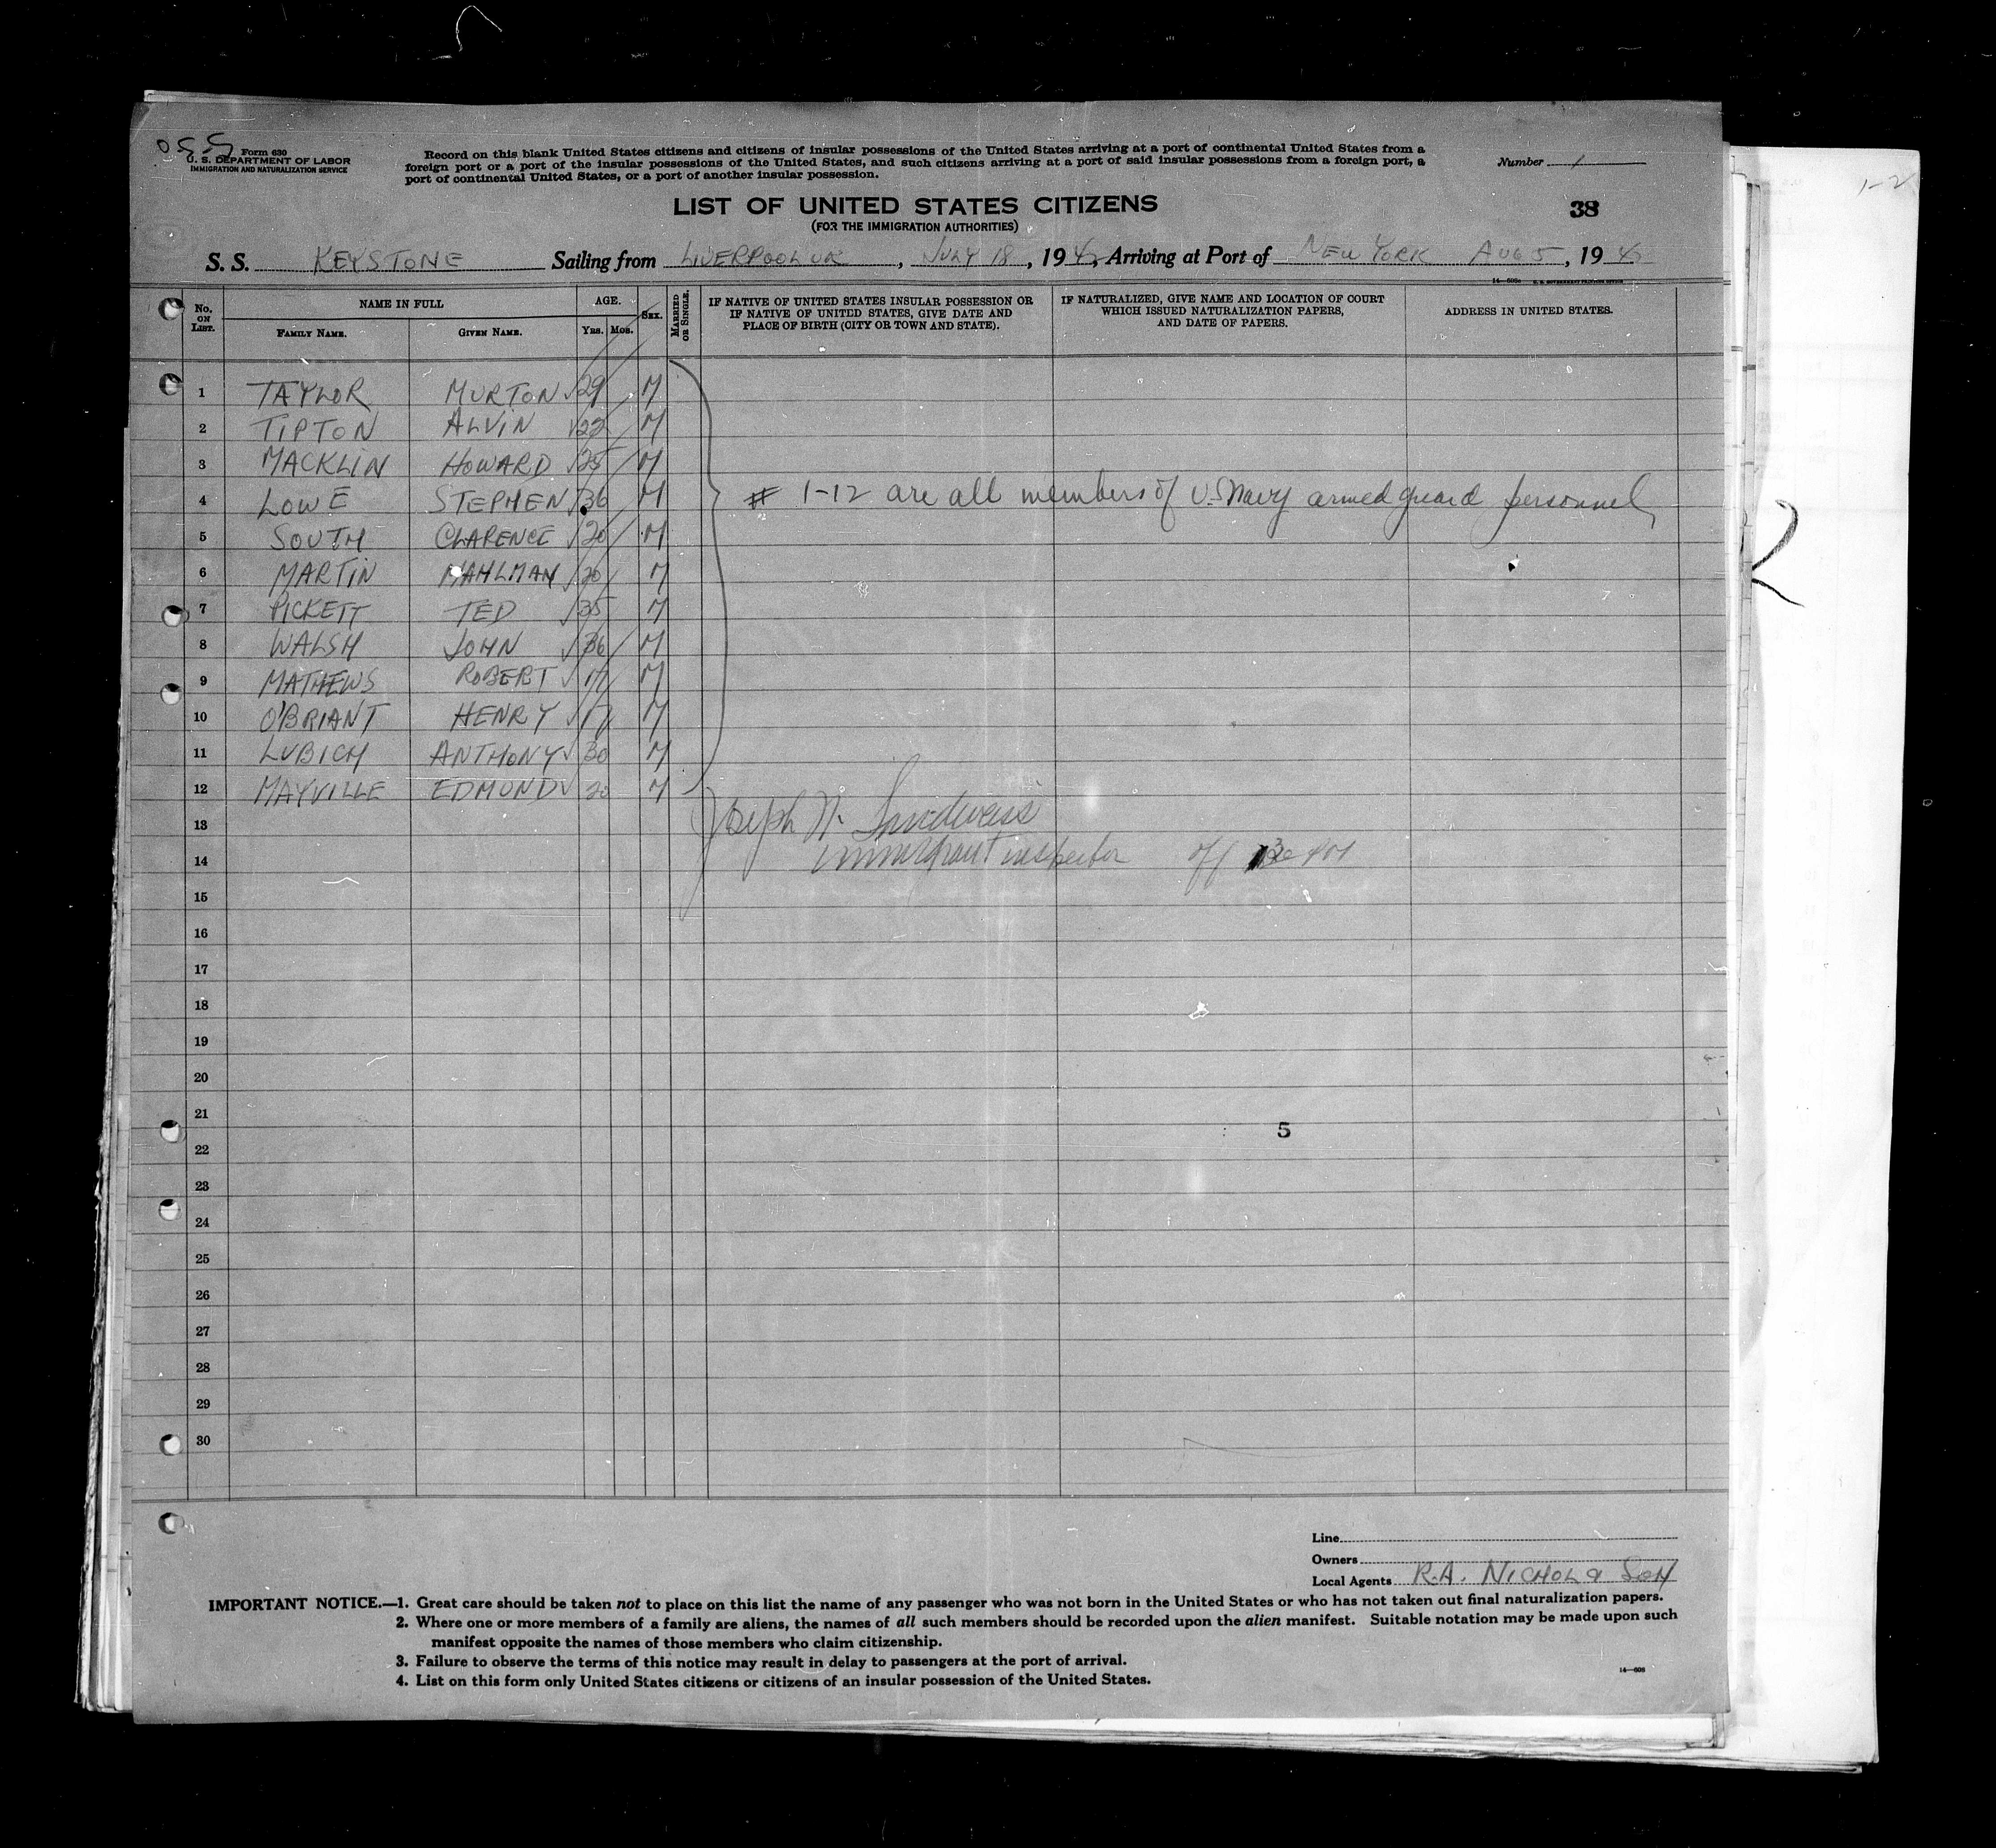 055
Form 630
U. S. DEPARTMENT OF LABOR
IMMIGRATION AND NATURALIZATION SERVICE
Record on this blank United States citizens and citizens of insular possessions of the United States arriving at a port of continental United States from a
foreign port or a port of the insular possessions of the United States, and such citizens arriving at a port of said insular possessions from a foreign port, a
port of continental United States, or a port of another insular possession.
Number 1
1-2
LIST OF UNITED STATES CITIZENS
(FOR THE IMMIGRATION AUTHORITIES)
38
S. S. KEYSTONE Sailing from LIVERPOOL UK, JULY 18, 1942, Arriving at Port of NEW YORK AUG 5, 1942
No. ON LIST. NAME IN FULL FAMILY NAME. GIVEN NAME. AGE. YRS. MOS. SEX. MARRIED OR SINGLE. IF NATIVE OF UNITED STATES INSULAR POSSESSION OR IF NATIVE OF UNITED STATES, GIVE DATE AND PLACE OF BIRTH (CITY OR TOWN AND STATE). IF NATURALIZED, GIVE NAME AND LOCATION OF COURT WHICH ISSUED NATURALIZATION PAPERS, AND DATE OF PAPERS. ADDRESS IN UNITED STATES.
1 TAYLOR MURTON 29 M
2 TIPTON ALVIN 22 M
3 MACKLIN HOWARD 25 M
4 LOWE STEPHEN 36 M # 1-12 are all members of U.S Navy armed guard personnel
5 SOUTH CLARENCE 20 M
6 MARTIN MAHLMAN 20 M
7 PICKETT TED 35 M
8 WALSH JOHN 36 M
9 MATHEWS ROBERT 17 M
10 O'BRIANT HENRY 17 M
11 LUBICH ANTHONY 30 M
12 MAYVILLE EDMOND 20 M
13 Joseph
14 immigrant inspector
15
16
17
18
19
20
21
5
22
23
24
25
26
27
28
29
30
Line
Owners
Local Agents R.A. NICHOL & SON
IMPORTANT NOTICE.—1. Great care should be taken not to place on this list the name of any passenger who was not born in the United States or who has not taken out final naturalization papers.
2. Where one or more members of a family are aliens, the names of all such members should be recorded upon the alien manifest. Suitable notation may be made upon such
manifest opposite the names of those members who claim citizenship.
3. Failure to observe the terms of this notice may result in delay to passengers at the port of arrival.
4. List on this form only United States citizens or citizens of an insular possession of the United States.
14—608